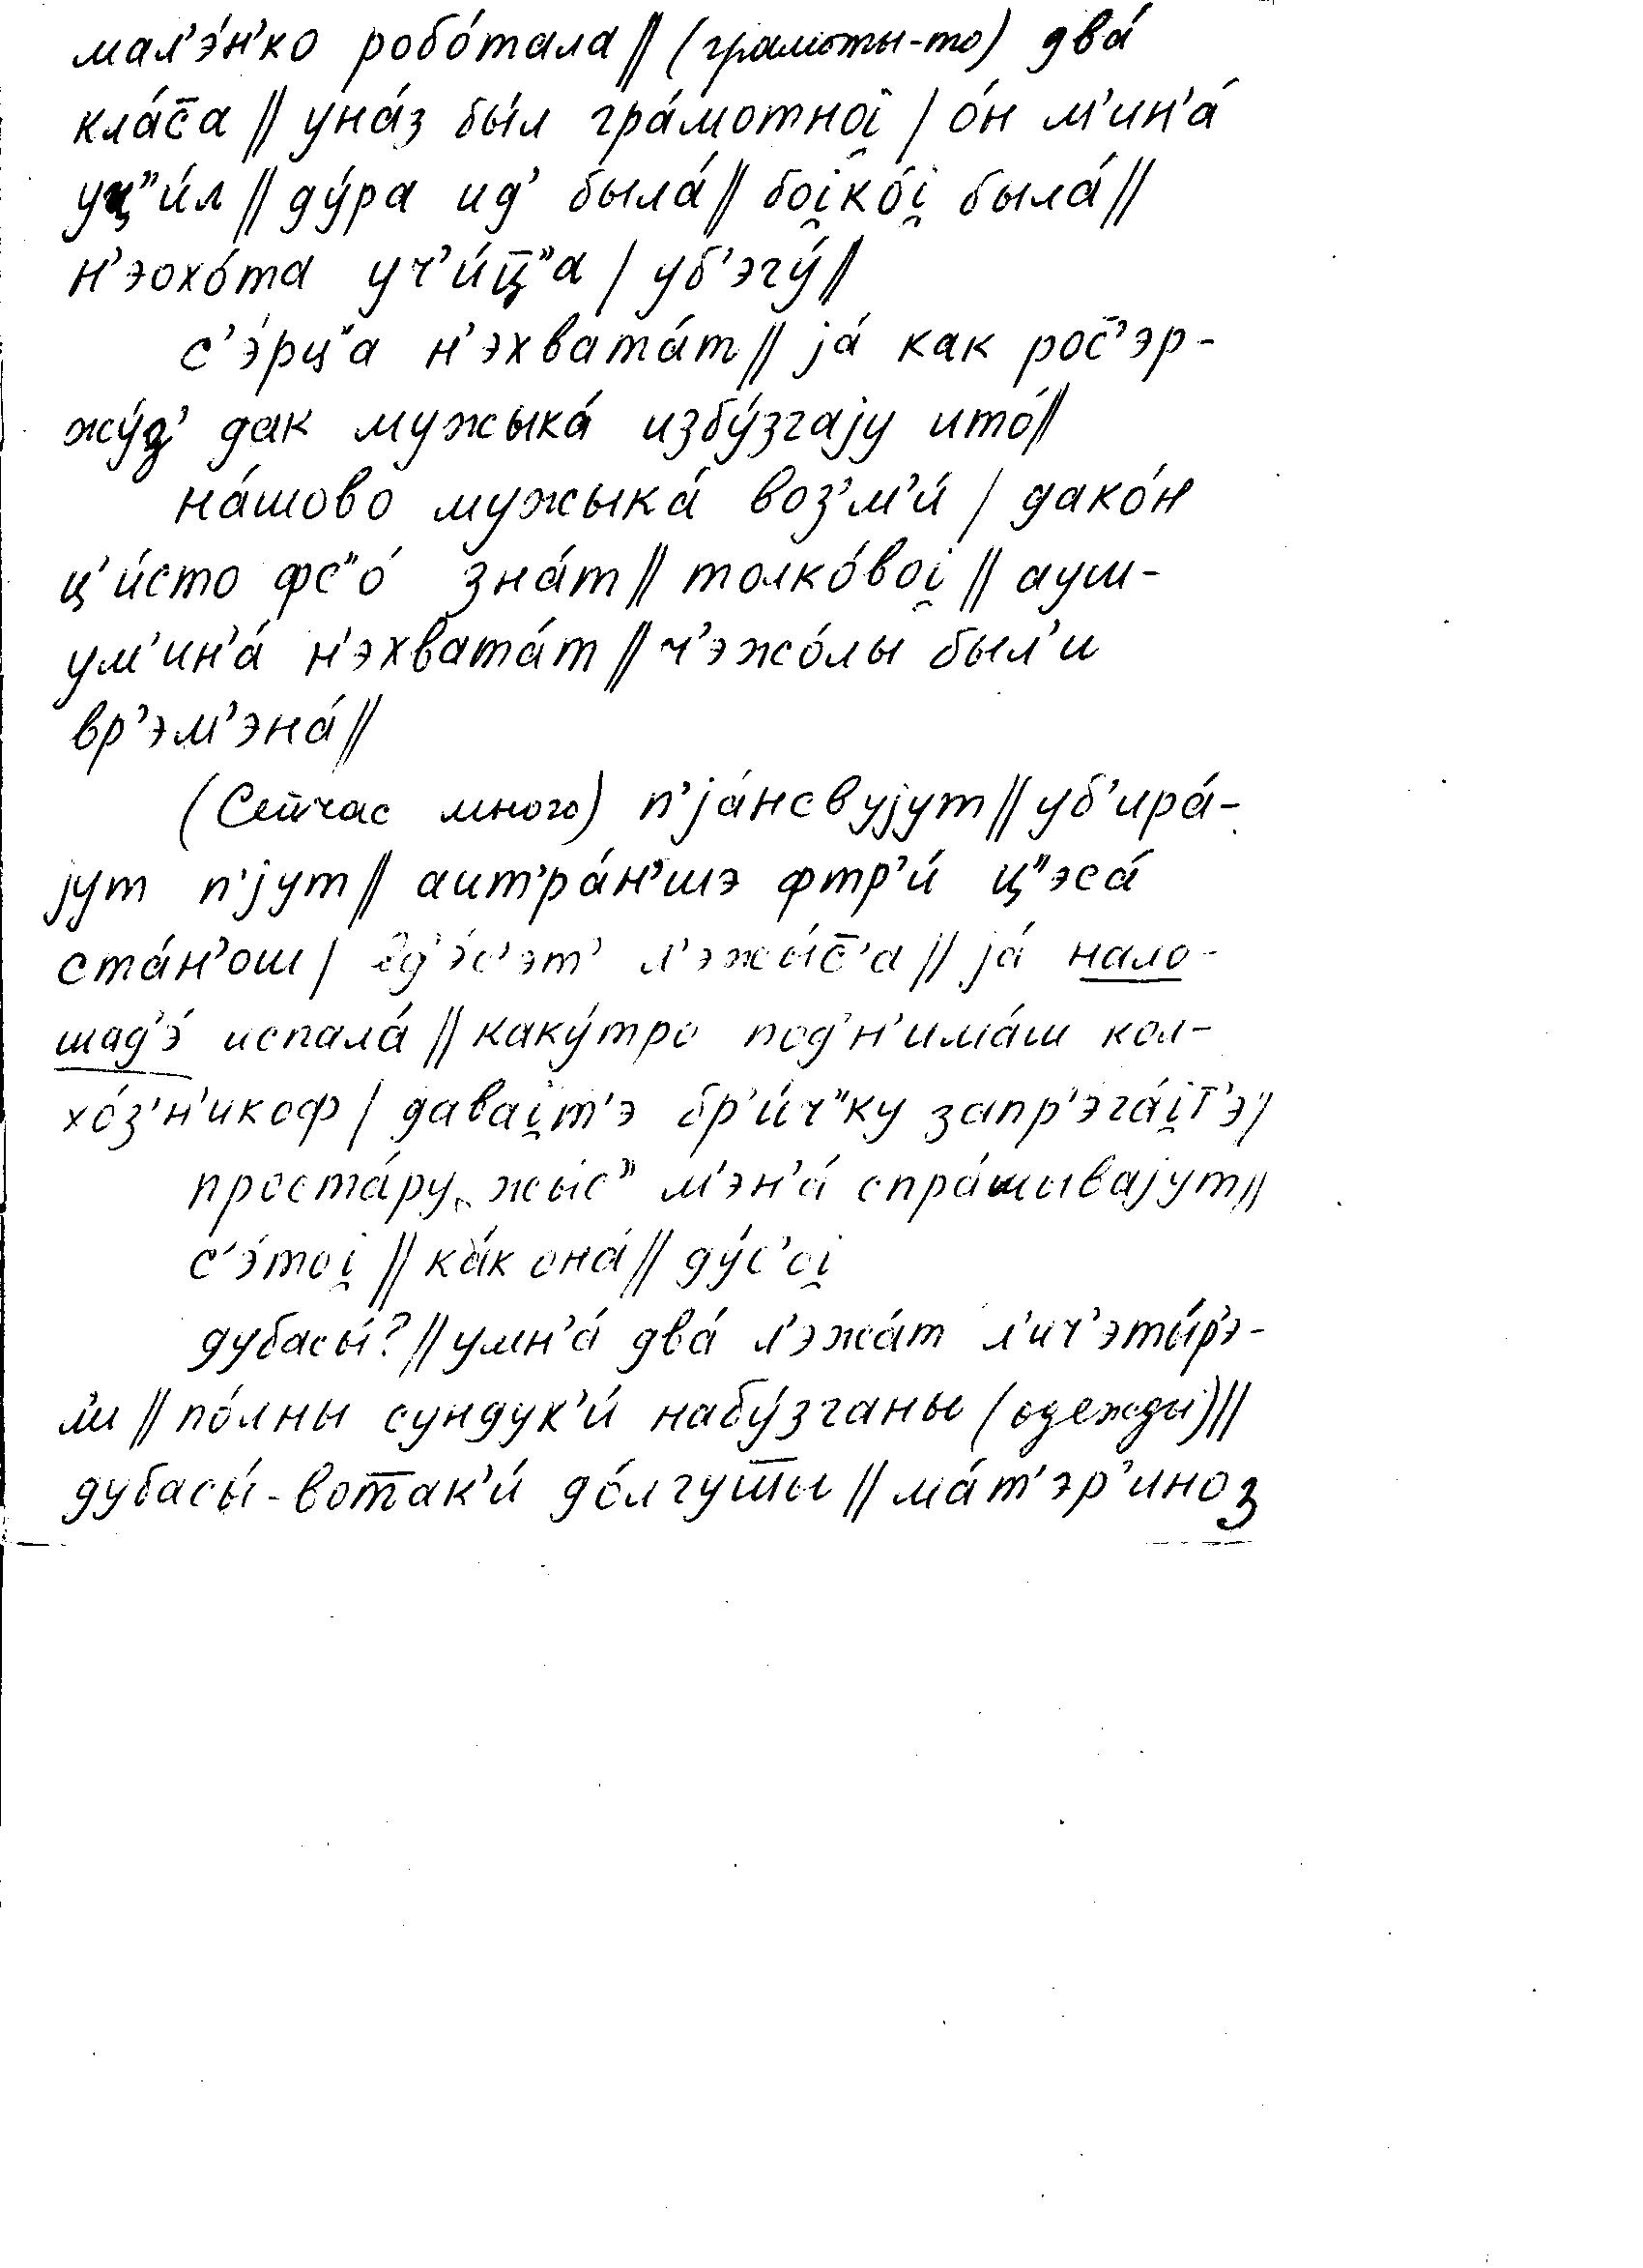 мал’э́н’ко робо́тала // (грамоты-то) два́
кла́с̄а // уна́з бы́л гра́мотноi̯ / о́н м’ин’а́
уц”и́л // ду́ра ид’ была́ // боi̯ко́i̯ была́ //
н’эохо́та уч’и́ц̄”а / уб’эгу́ //
с’э́рц”а н’эхвата́т // jа́ как рос̄’эр-
жу́з’ дак мужыка́ избу́згаjу ито́ //
на́шово мужыка́ воз’м’и́ / дако́н
ц’и́сто фс”о́ зна́т // толко́воi̯ // ауш-
ум’ин’а́ н’эхвата́т // ч’эжо́лы был’и
вр’эм’эна́ //
(Сейчас много) п’jа́нсвуjут // уб’ира́-
jут п’jут // аит’ра́н’шэ фтр’и́ ц”эса́
ста́н’ош / гд’э́с’эт’ л’эжы́с̄’а // jа́ нало-
шад’э́ испала́ // каку́тро под’н’има́ш кол-
хо́з’н’икоф / даваi̯т’э бр’и́ч”ку запр’эга́i̯т’э /
проста́ру жыс” м’эн’а́ спра́шываjут //
с’э́тоi̯ // ка́к она́ // ду́с’оi̯
дубасы́? // умн’а́ два́ л’эжа́т л’ич’эты́р’э-
л’и // по́лны сундук’и́ набу́зганы (одежды) //
дубасы́ - вот̄ак’и́ до́лгуш̄ы // ма́т’эр’иноз